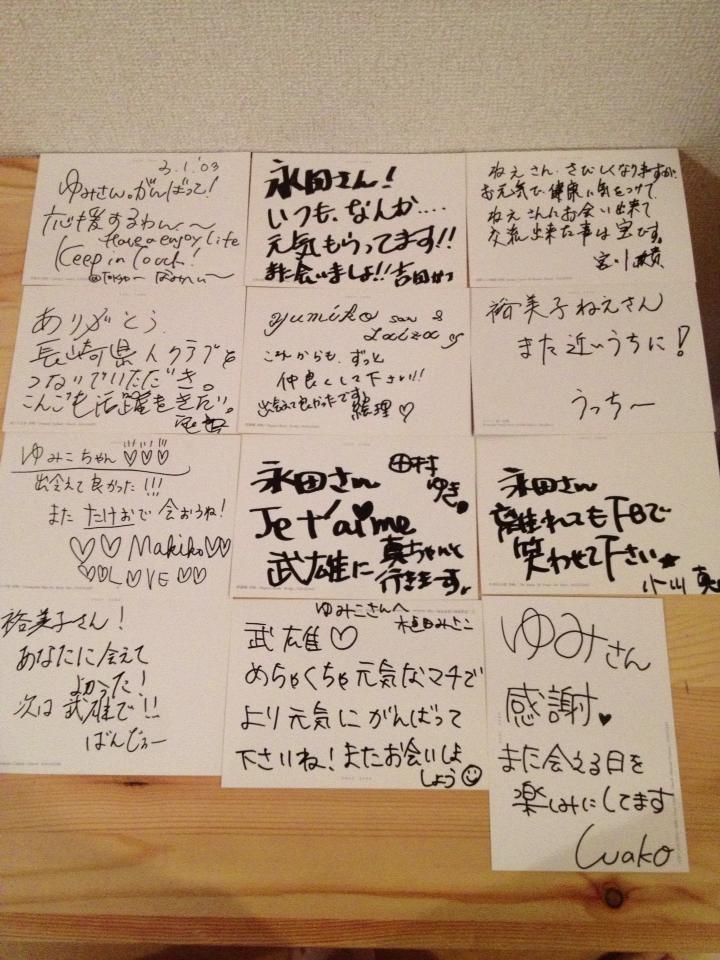 3.1.'03
ゆみさん。がんばって!
応援するわん、〜
Have a enjoy Life
Keep in Touch!
@Tokyo〜
永田さん!
いつも、なんか....
元気もらってます!!
また会いましょ!!吉田
ねえさん、さびしくなりますが、
お元気で、健康に気をつけて、
ねえさんにお会い出来て
交流出来た事は宝です。
宮川
ありがとう、
長崎県人クラブを
つないでいただき。
こんごも活躍をきたい。
yumiko san &
これからも、ずっと
仲良くして下さい!!
出会えて良かったです。
絵理♡
裕美子ねえさん
また近いうちに!
うっち〜
ゆみこちゃん♡♡♡
出会えて良かった!!!
また たけおで 会おうね!
♡♡Makiko♡♡
♡♡LOVE♡♡
永田さん
田村
ゆき。
Je t'aime
武雄に
真ちゃんと
行きまーす。
永田さん
離れてもFBで
笑わせて下さい★
小川
裕美子さん!
あなたに会えて
よかった!
次は 武雄で!!
ばんどぅー
ゆみこさんへ
武雄♡
めちゃくちゃ元気なマチで
より元気にがんばって
下さいね!またお会いしま
しょう☺
ゆみさん
感謝♥
また会える日を
楽しみにしてます
Wako